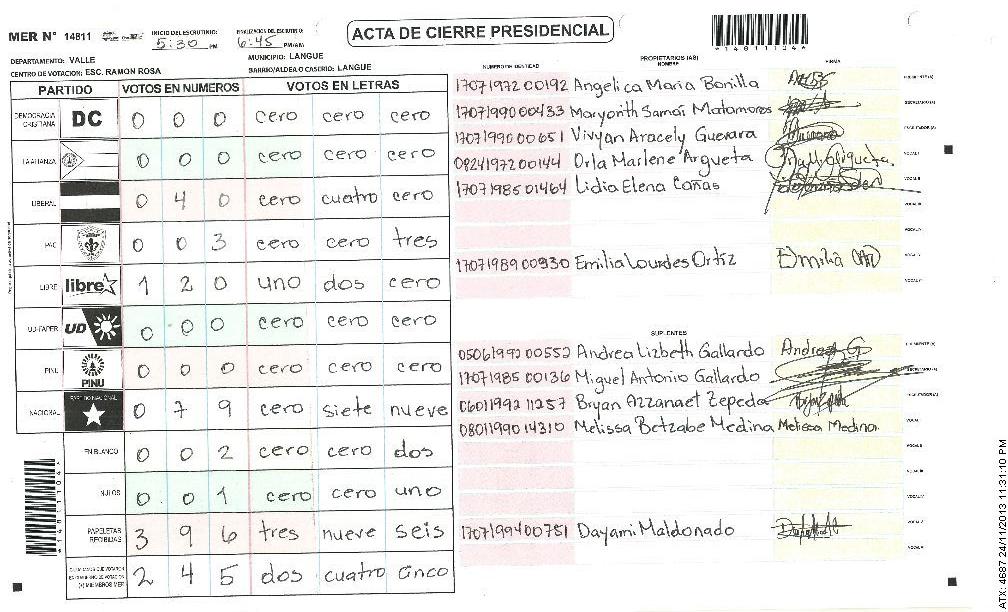 ACTA DE CIERRE PRESIDENCIAL
MER N° 14811
INICIO DEL ESCRUTINIO: 5:30 PM
FINALIZACION DEL ESCRUTINIO: 6:45 PM/AM
*14811104*
DEPARTAMENTO: VALLE
MUNICIPIO: LANGUE
CENTRO DE VOTACION: ESC. RAMON ROSA
BARRIO/ALDEA O CASERIO: LANGUE
PARTIDO VOTOS EN NUMEROS VOTOS EN LETRAS
DEMOCRACIA CRISTIANA DC 0 0 0 cero cero cero
LA ALIANZA 0 0 0 cero cero cero
LIBERAL 0 4 0 cero cuatro cero
PAC 0 0 3 cero cero tres
LIBRE libre 1 2 0 uno dos cero
UD-FAPER UD 0 0 0 cero cero cero
PINU PINU 0 0 0 cero cero cero
NACIONAL PARTIDO NACIONAL 0 7 9 cero siete nueve
EN BLANCO 0 0 2 cero cero dos
NULOS 0 0 1 cero cero uno
PAPELETAS RECIBIDAS 3 9 6 tres nueve seis
CIUDADANOS QUE VOTARON 2 4 5 dos cuatro cinco
(+) MIEMBROS MER
NUMERO DE IDENTIDAD PROPIETARIOS (AS) NOMBRE FIRMA
1707197200192 Angelica Maria Bonilla
1707199000433 Maryorith Samai Matamoros
1707199000651 Vivyan Aracely Guevara
0824197200144 Orla Marlene Argueta
1707198501464 Lidia Elena Cañas
1707198900930 Emilia Lourdes Ortiz Emilia
SUPLENTES
0506199200552 Andrea Lizbeth Gallardo Andrea G
1707198500136 Miguel Antonio Gallardo
0601199211257 Bryan Azzanaet Zepeda
0801199014310 Melissa Betzabe Medina Melissa Medina
1707199400751 Dayami Maldonado
*14811104*
ATX: 4687 24/11/2013 11:31:10 PM